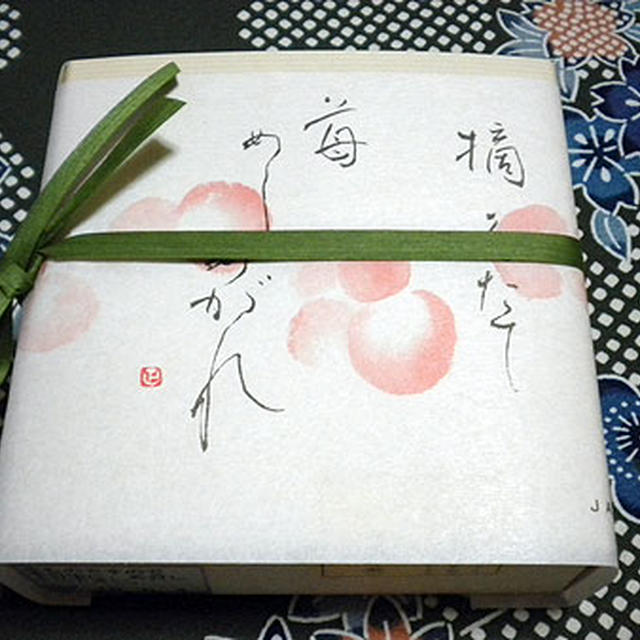 摘みたて
苺
めしあがれ
JA